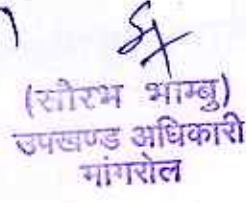 (सौरभ भाम्बु)
उपखण्ड अधिकारी
मांगरोल